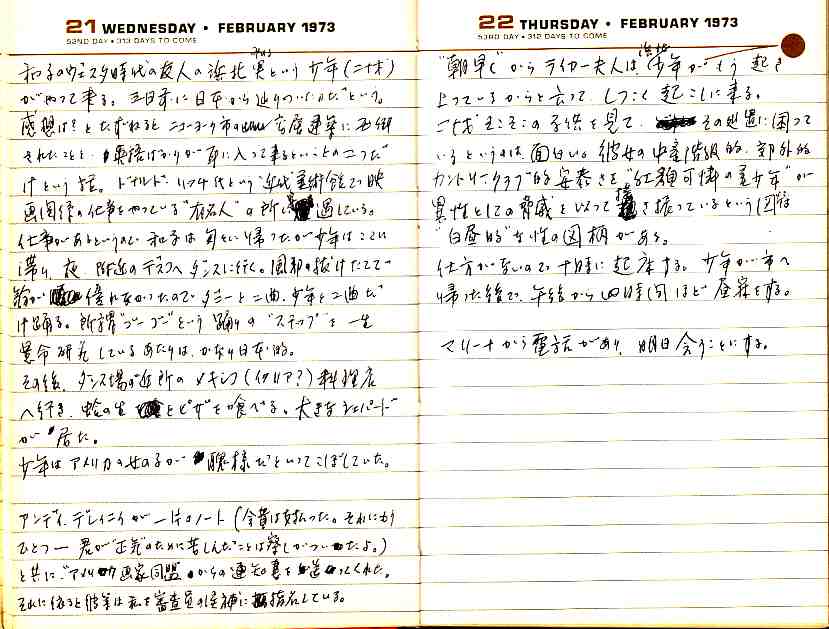 21 WEDNESDAY • FEBRUARY 1973
52ND DAY • 313 DAYS TO COME
和子のヴェスタ時代の友人の浜北 実という少年(二十才)
がやって来る。三日前に日本から辿りついたのだという。
感想は?とたずねるとニューヨーク市の 高層建築に圧倒
されたことと、英語ばかりが耳に入って来るということの二つだ
けという話。ドナルド・リッチイという近代美術館で映
画関係の仕事をやっている"有名人"の所に 過している。
仕事があるというので和子は 帰ったが少年はここに
滞り、夜、附近の ダンスに行く。風邪の抜けたてで
優れなかったのでダニーと二曲、少年と二曲だ
け踊る。所謂"ゴーゴー"という踊りの"ステップ"を一生
懸命研究しているあたりは、かなり日本的。
その後、ダンス場の近所のメキシコ(イタリア?)料理店
へ行き、蛤の生 とピザを喰べる。大きなシェパード
が居た。
少年はアメリカの女の子が 醜様だといってこぼしていた。
アンディ・デレイニイが一片のノート(会費は支払った。それにもう
ひとつ― 君が"正気"のために苦しんだことは察しがついたよ。)
と共に"アメリカ画家同盟"からの通知書を送ってくれた。
それに依ると彼等は私を審査員の候補に指名している。
22 THURSDAY • FEBRUARY 1973
53RD DAY • 312 DAYS TO COME
"朝早く"からライカー夫人は、浜北少年がもう起き
上っているからと云って、しつこく起こしに来る。
二十才そこそこの子供を見て、 その処置に困って
いるというのは面白い。彼女の中産階級的、郊外的
カントリークラブ的安泰さを"紅顔可憐の美少年"が
異性としての脅威をもって 揺さ振っているという図は
"白昼的"な性の図柄がある。
仕方がないので十時に起床する。少年が市へ
帰った後で、午後から四時間ほど昼寝をする。
マリーナから電話があり、明日会うことにする。